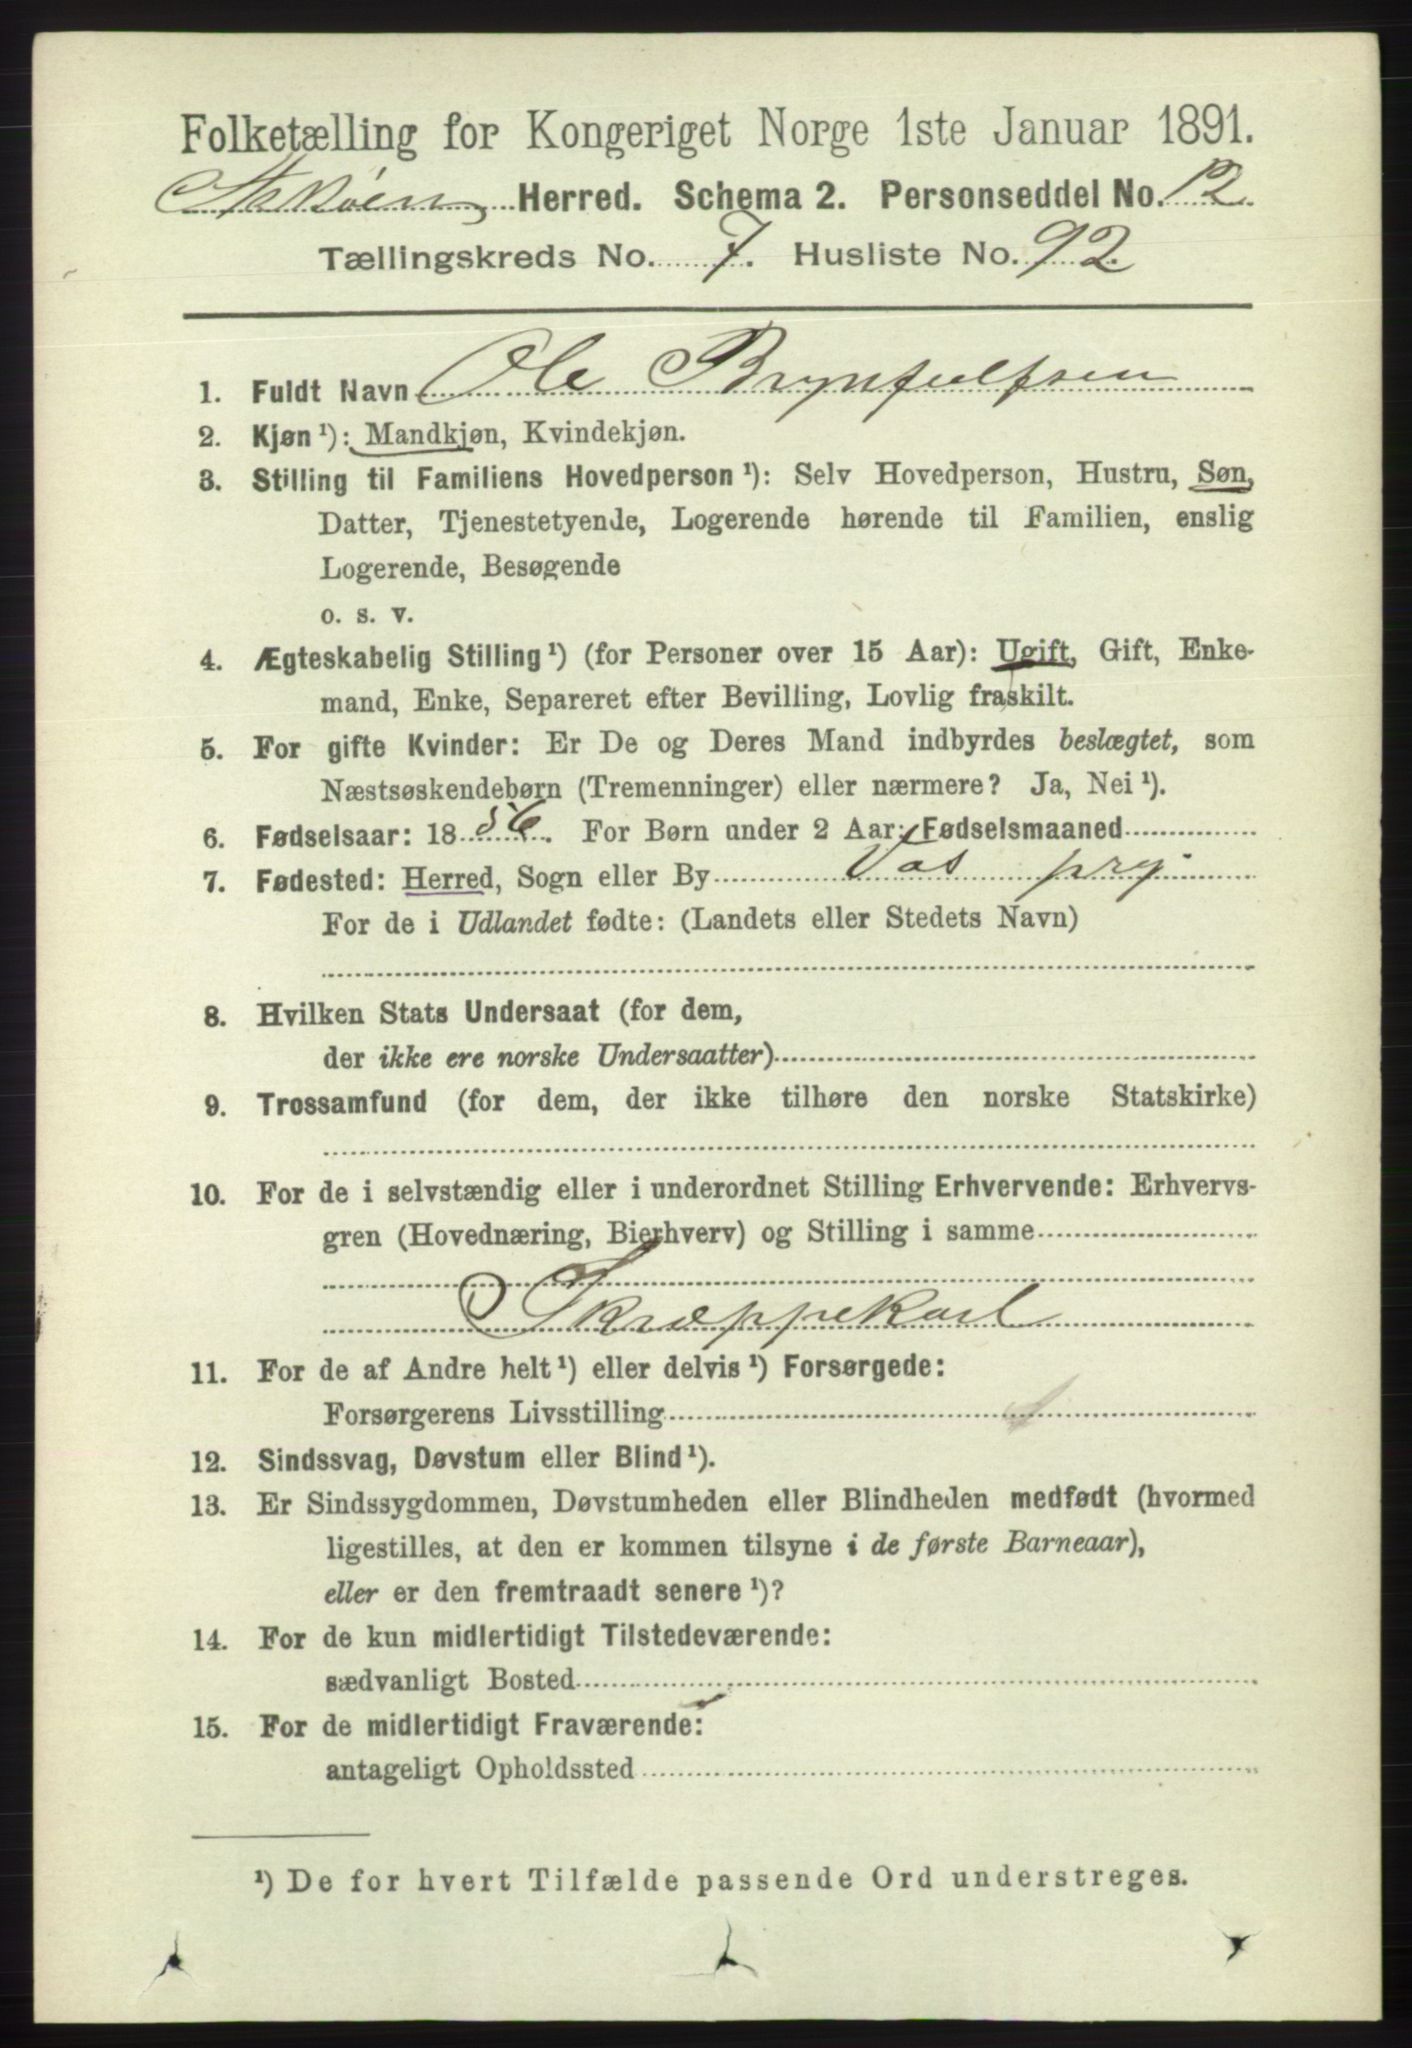 Folketælling for Kongeriget Norge 1ste Januar 1891.
Askøen Herred. Schema 2. Personseddel No. 12.
Tællingskreds No. 7. Husliste No. 92.
1. Fuldt Navn Ole Brynjulfsen
2. Kjøn ¹): Mandkjøn, Kvindekjøn.
3. Stilling til Familiens Hovedperson ¹): Selv Hovedperson, Hustru, Søn,
Datter, Tjenestetyende, Logerende hørende til Familien, enslig
Logerende, Besøgende
o. s. v.
4. Ægteskabelig Stilling ¹) (for Personer over 15 Aar): Ugift, Gift, Enke-
mand, Enke, Separeret efter Bevilling, Lovlig fraskilt.
5. For gifte Kvinder: Er De og Deres Mand indbyrdes beslægtet, som
Næstsøskendebørn (Tremenninger) eller nærmere? Ja, Nei ¹).
6. Fødselsaar: 1856. For Børn under 2 Aar: Fødselsmaaned
7. Fødested: Herred, Sogn eller By Vos prg.
For de i Udlandet fødte: (Landets eller Stedets Navn)
8. Hvilken Stats Undersaat (for dem,
der ikke ere norske Undersaatter)
9. Trossamfund (for dem, der ikke tilhøre den norske Statskirke)
10. For de i selvstændig eller i underordnet Stilling Erhvervende: Erhvervs-
gren (Hovednæring, Bierhverv) og Stilling i samme
Skræppekarl
11. For de af Andre helt ¹) eller delvis ¹) Forsørgede:
Forsørgerens Livsstilling
12. Sindssvag, Døvstum eller Blind ¹).
13. Er Sindssygdommen, Døvstumheden eller Blindheden medfødt (hvormed
ligestilles, at den er kommen tilsyne i de første Barneaar),
eller er den fremtraadt senere ¹)?
14. For de kun midlertidigt Tilstedeværende:
sædvanligt Bosted
15. For de midlertidigt Fraværende:
antageligt Opholdssted
¹) De for hvert Tilfælde passende Ord understreges.